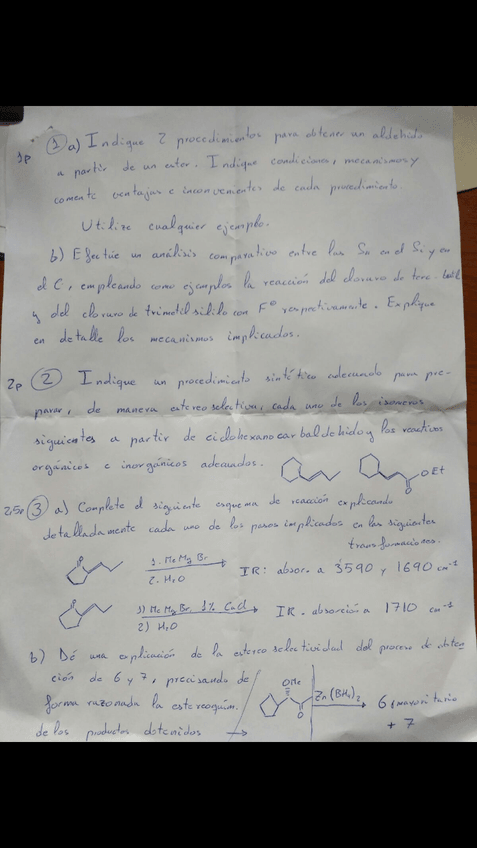 1p ① a) Indique 2 procedimientos para obtener un aldehido
a partir de un ester. Indique condiciones, mecanismos y
comente ventajas e inconvenientes de cada procedimiento.
Utilize cualquier ejemplo.
b) Efectúe un análisis comparativo entre las SN en el Si y en
el C, empleando como ejemplos la reacción del cloruro de terc-butil
y del cloruro de trimetilsililo con F⊖ respectivamente. Explique
en detalle los mecanismos implicados.
2p ② Indique un procedimiento sintético adecuado para pre-
parar, de manera estereoselectiva, cada uno de los isomeros
siguientes a partir de ciclohexanocarbaldehido y los reactivos
orgánicos e inorgánicos adecuados.
OEt
O
2,5p ③ a) Complete el siguiente esquema de reacción explicando
detalladamente cada uno de los pasos implicados en las siguientes
transformaciones.
O 1. MeMgBr 2. H2O IR: absor. a 3590 y 1690 cm-1
O 1) MeMgBr, 1% CuCl 2) H2O IR. absorción a 1710 cm-1
b) Dé una explicación de la estereoselectividad del proceso de obten
ción de 6 y 7, precisando de
forma razonada la estereoquím.
de los productos obtenidos →
OMe
O
Zn(BH4)2 6 (mayoritario
+ 7